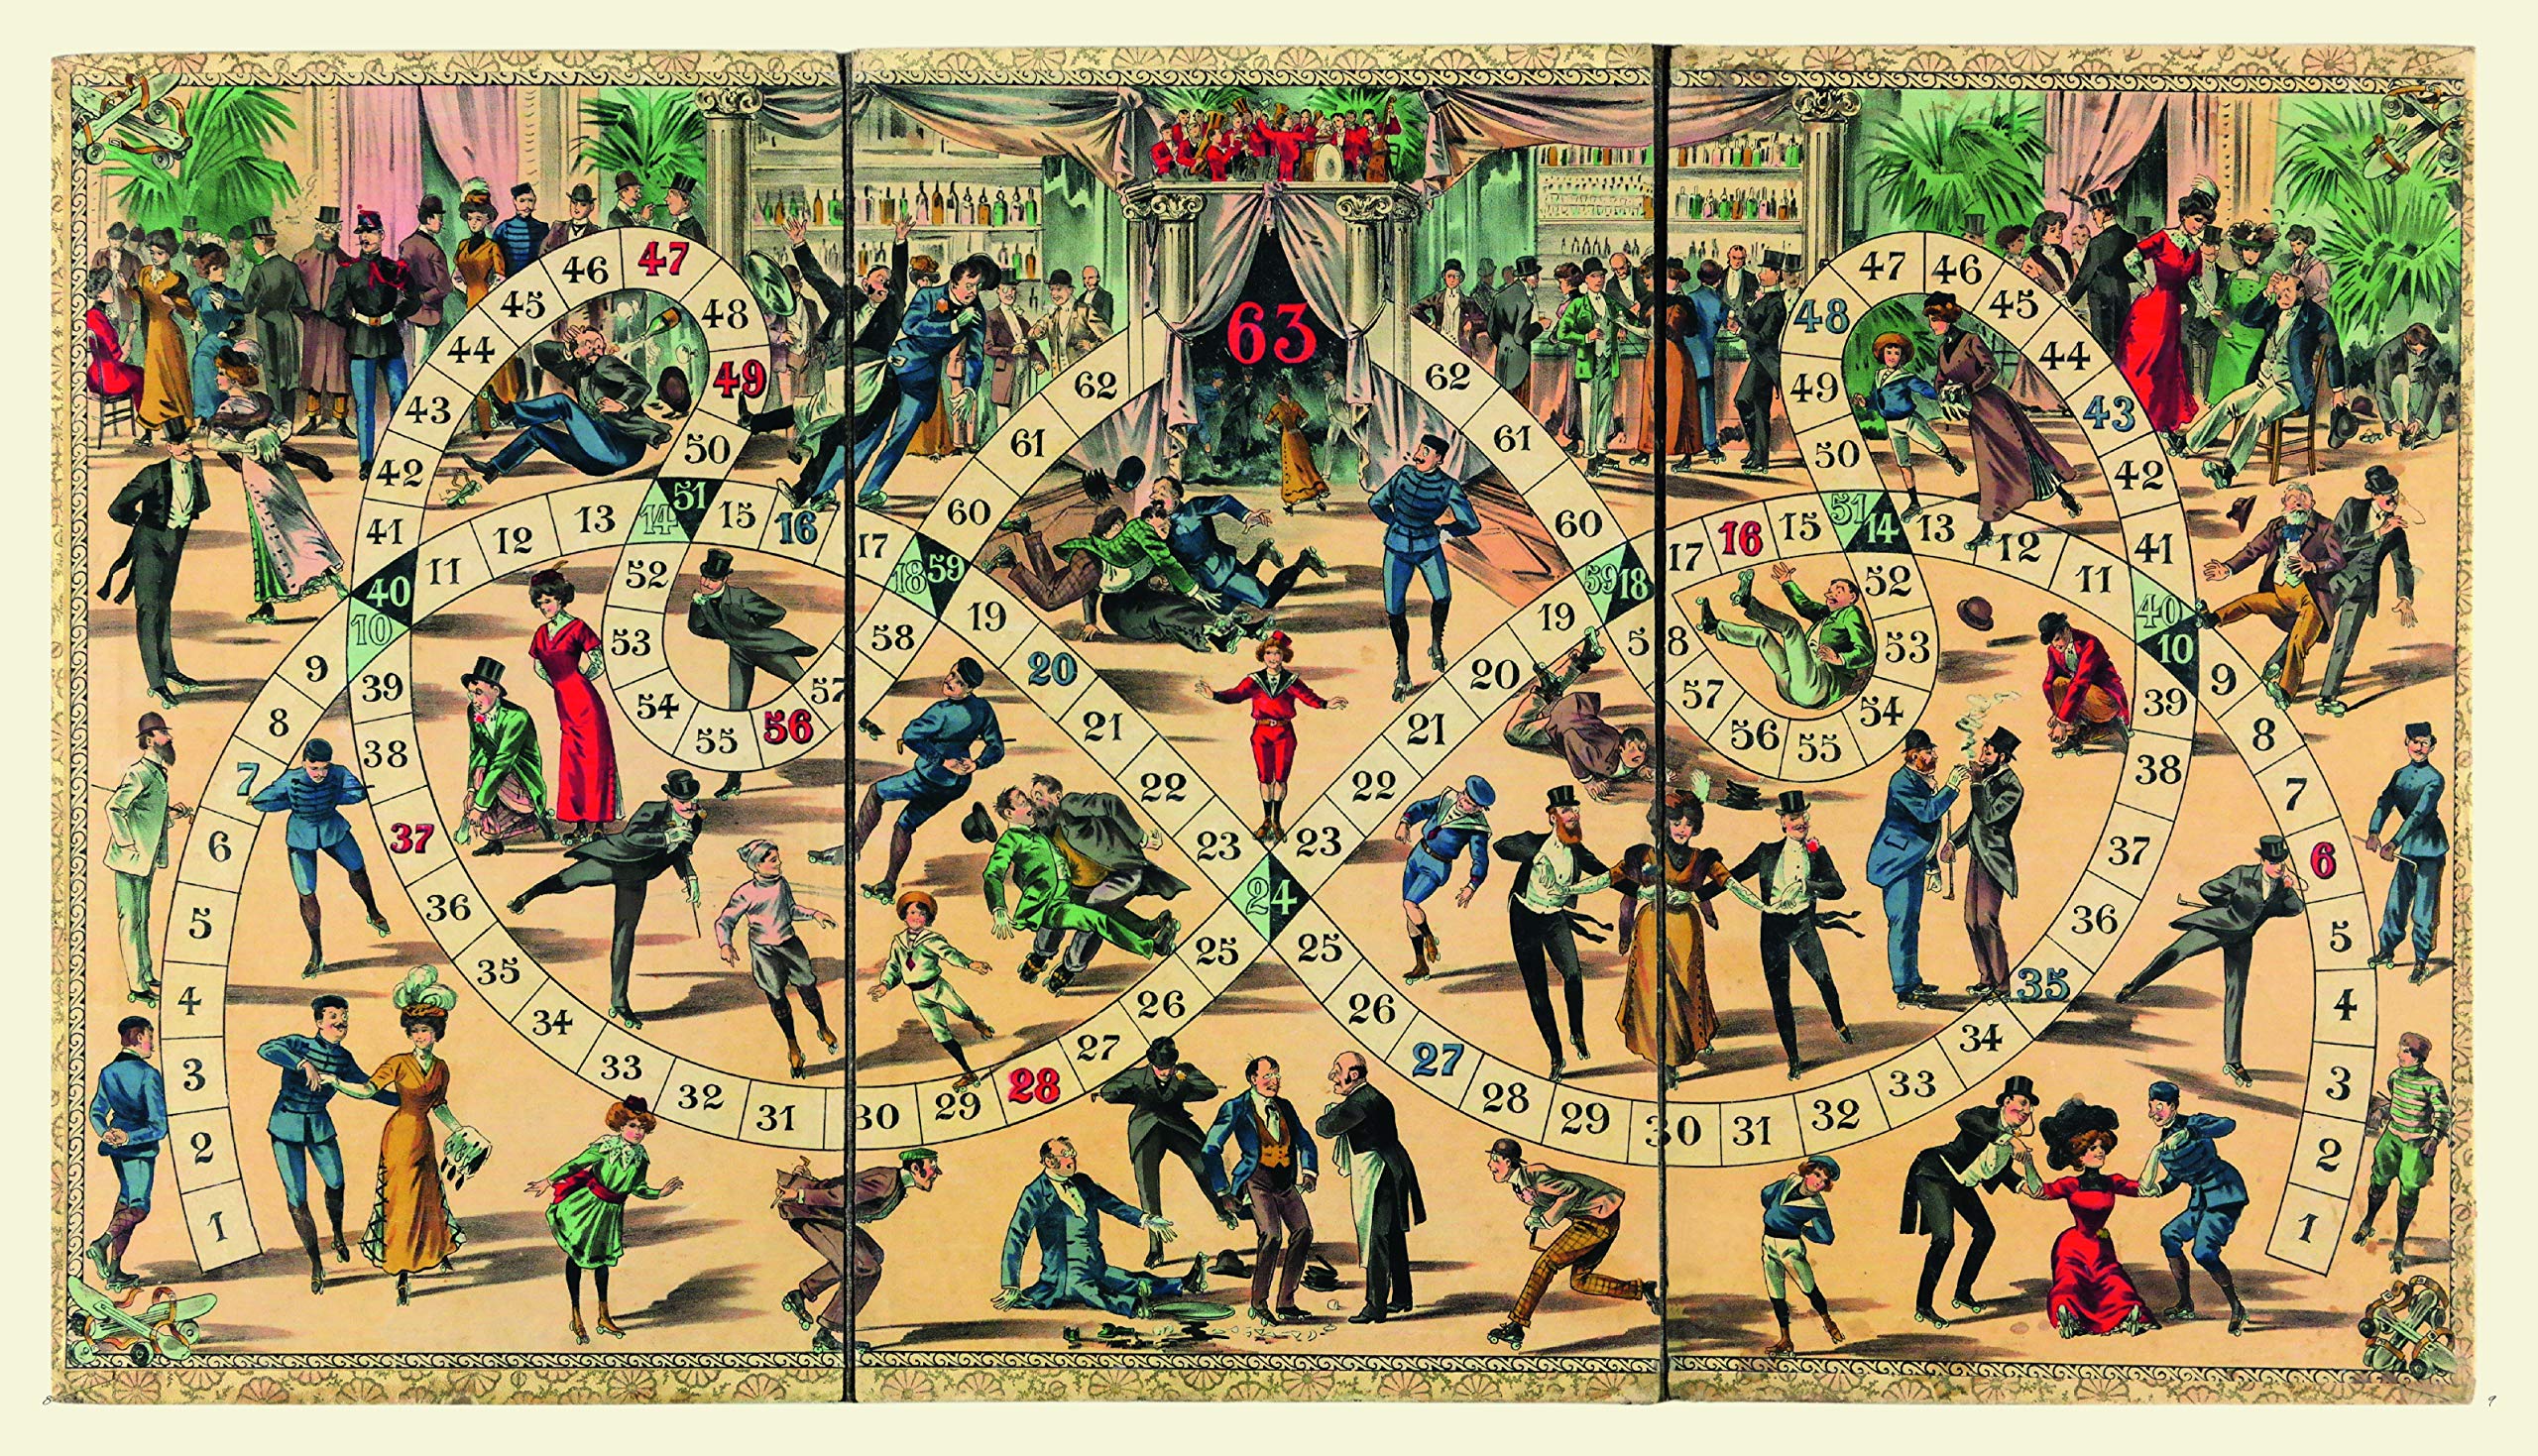 1 2 3 4 5 6 7 8 9 10 11 12 13 14 15 16 17 18 19 20 21 22 23 24 25 26 27 28 29 30 31 32 33 34 35 36 37 38 39 40 41 42 43 44 45 46 47 48 49 50 51 52 53 54 55 56 57 58 59 60 61 62
63
1 2 3 4 5 6 7 8 9 10 11 12 13 14 15 16 17 18 19 20 21 22 23 25 26 27 28 29 30 31 32 33 34 35 36 37 38 39 40 41 42 43 44 45 46 47 48 49 50 51 52 53 54 55 56 57 58 59 60 61 62
8
9